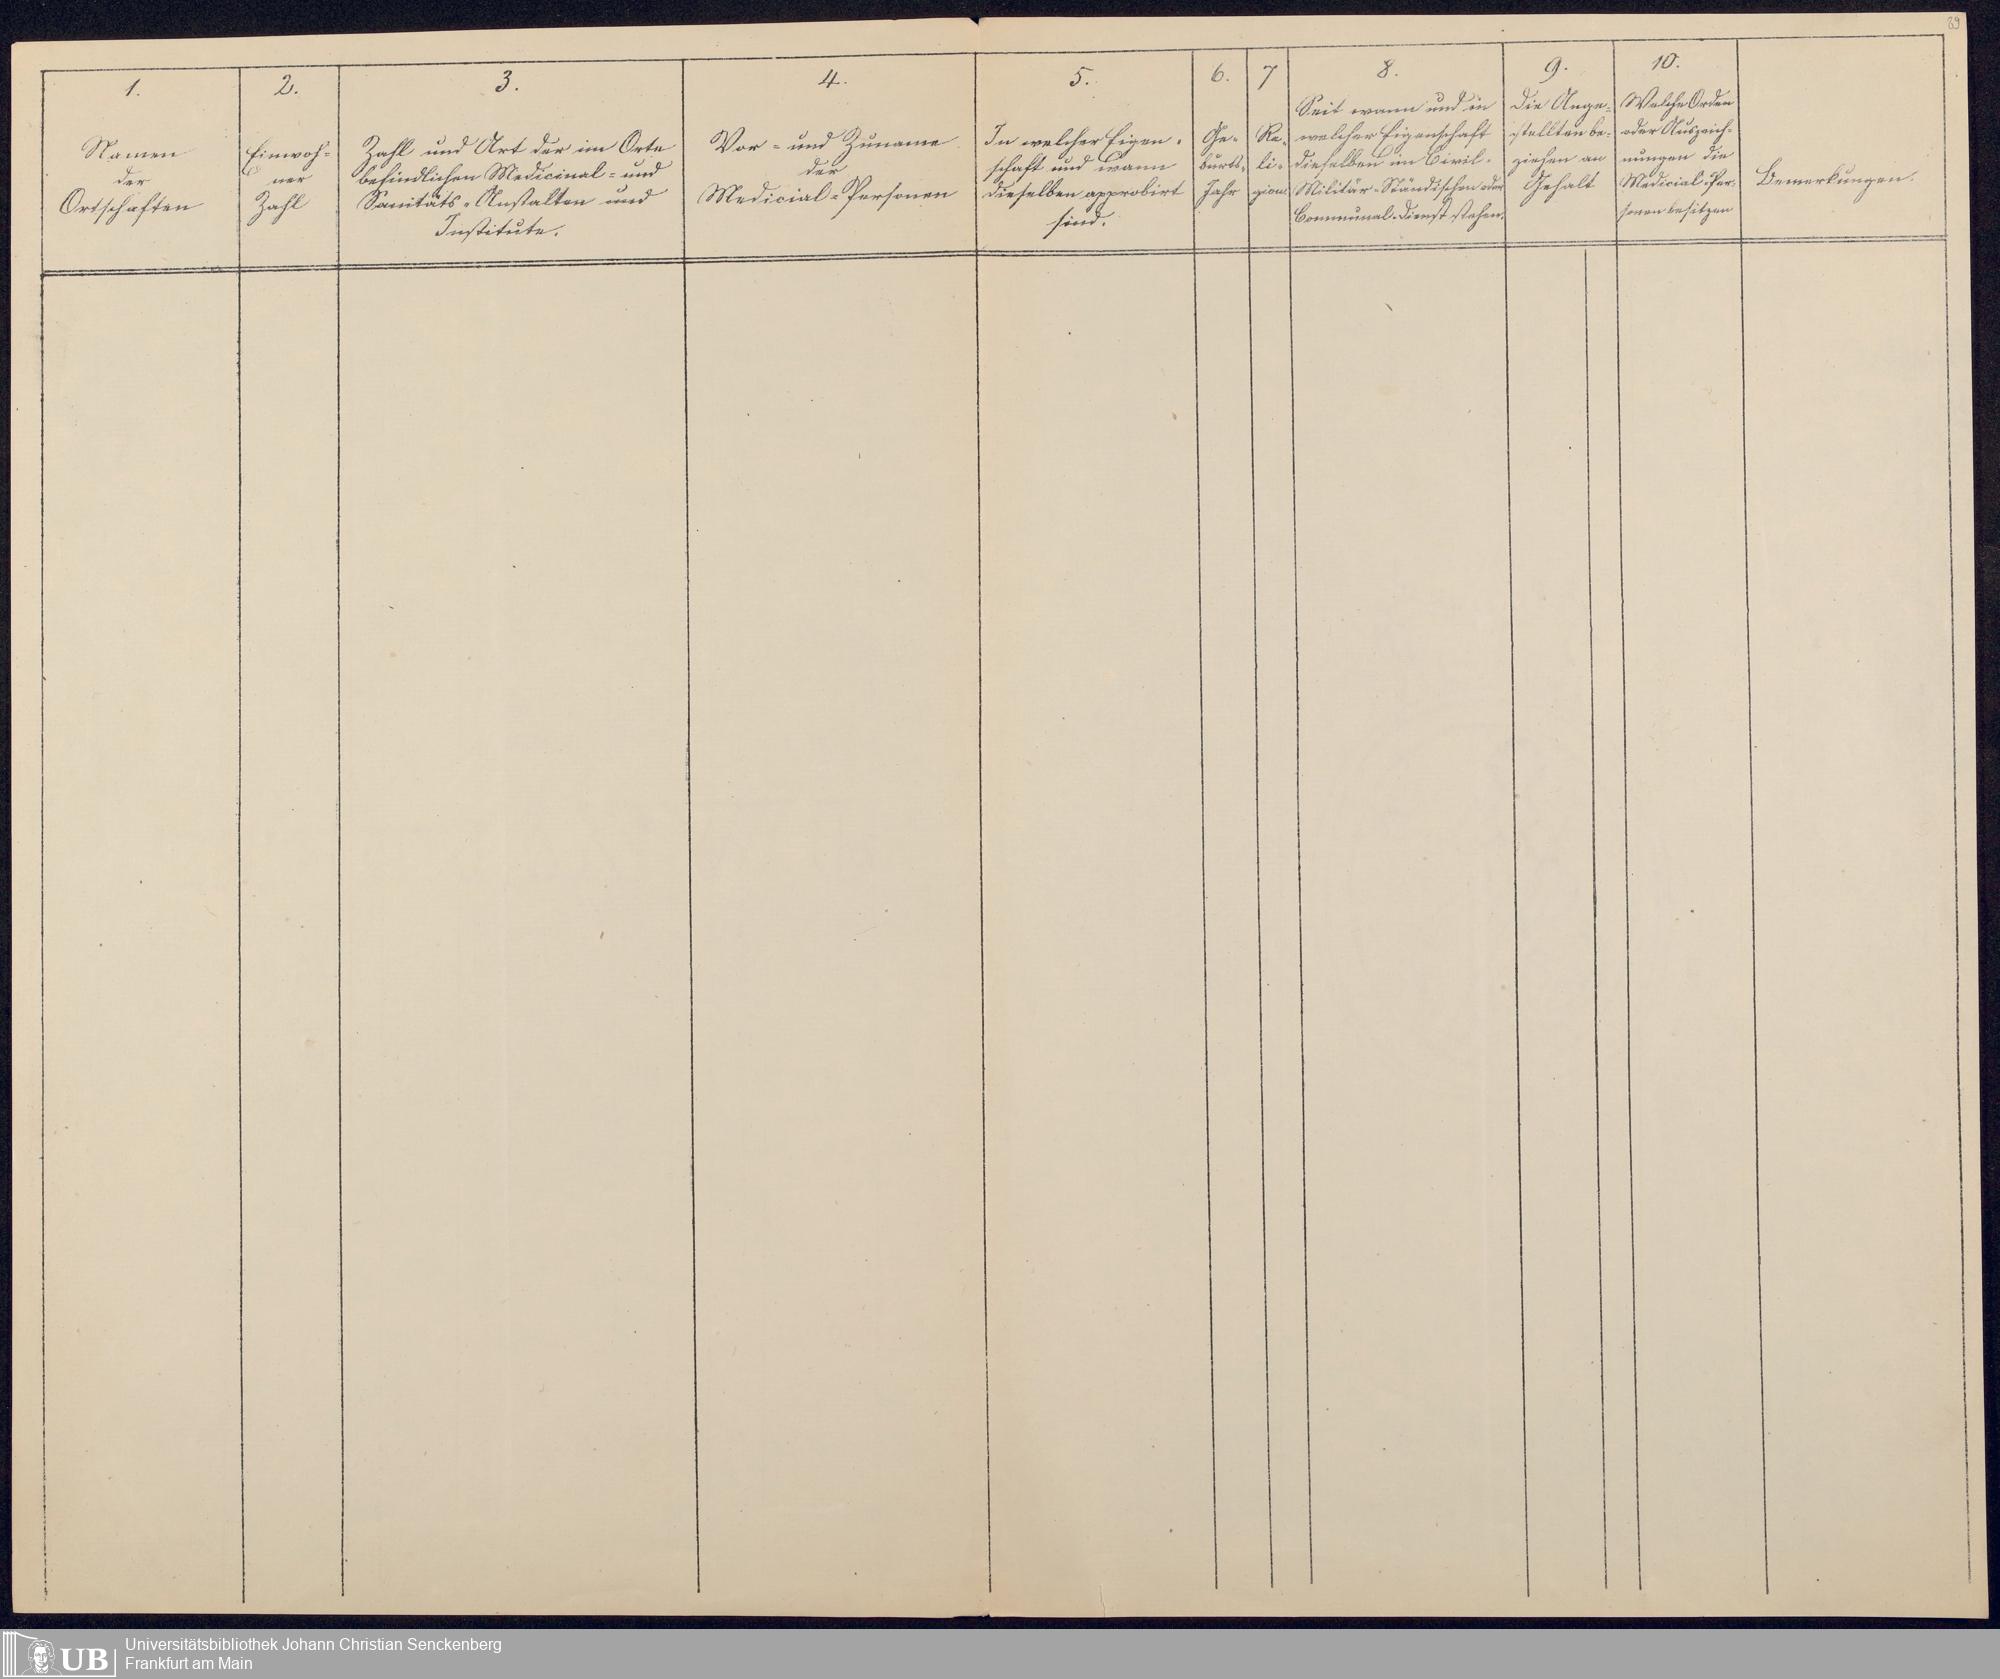 89
1.
Namen
der
Ortschaften
2.
Einwoh-
ner
Zahl
3.
Zahl und Art der im Orte
befindlichen Medicinal- und
Sanitäts-Anstalten und
Institute.
4.
Vor- und Zuname
der
Medicial-Personen
5.
In welcher Eigen-
schaft und wann
dieselben approbirt
sind.
6.
Ge-
burts-
Jahr
7
Re-
li-
gion
8.
Seit wann und in
welcher Eigenschaft
dieselben im Civil-
Militär-Ständischen oder
Communal-Dienst stehen.
9.
Die Ange-
stellten be-
ziehen an
Gehalt
10.
Welche Orden
oder Auszeich-
nungen die
Medicial-Per-
sonen besitzen
Bemerkungen.
UB
Universitätsbibliothek Johann Christian Senckenberg
Frankfurt am Main